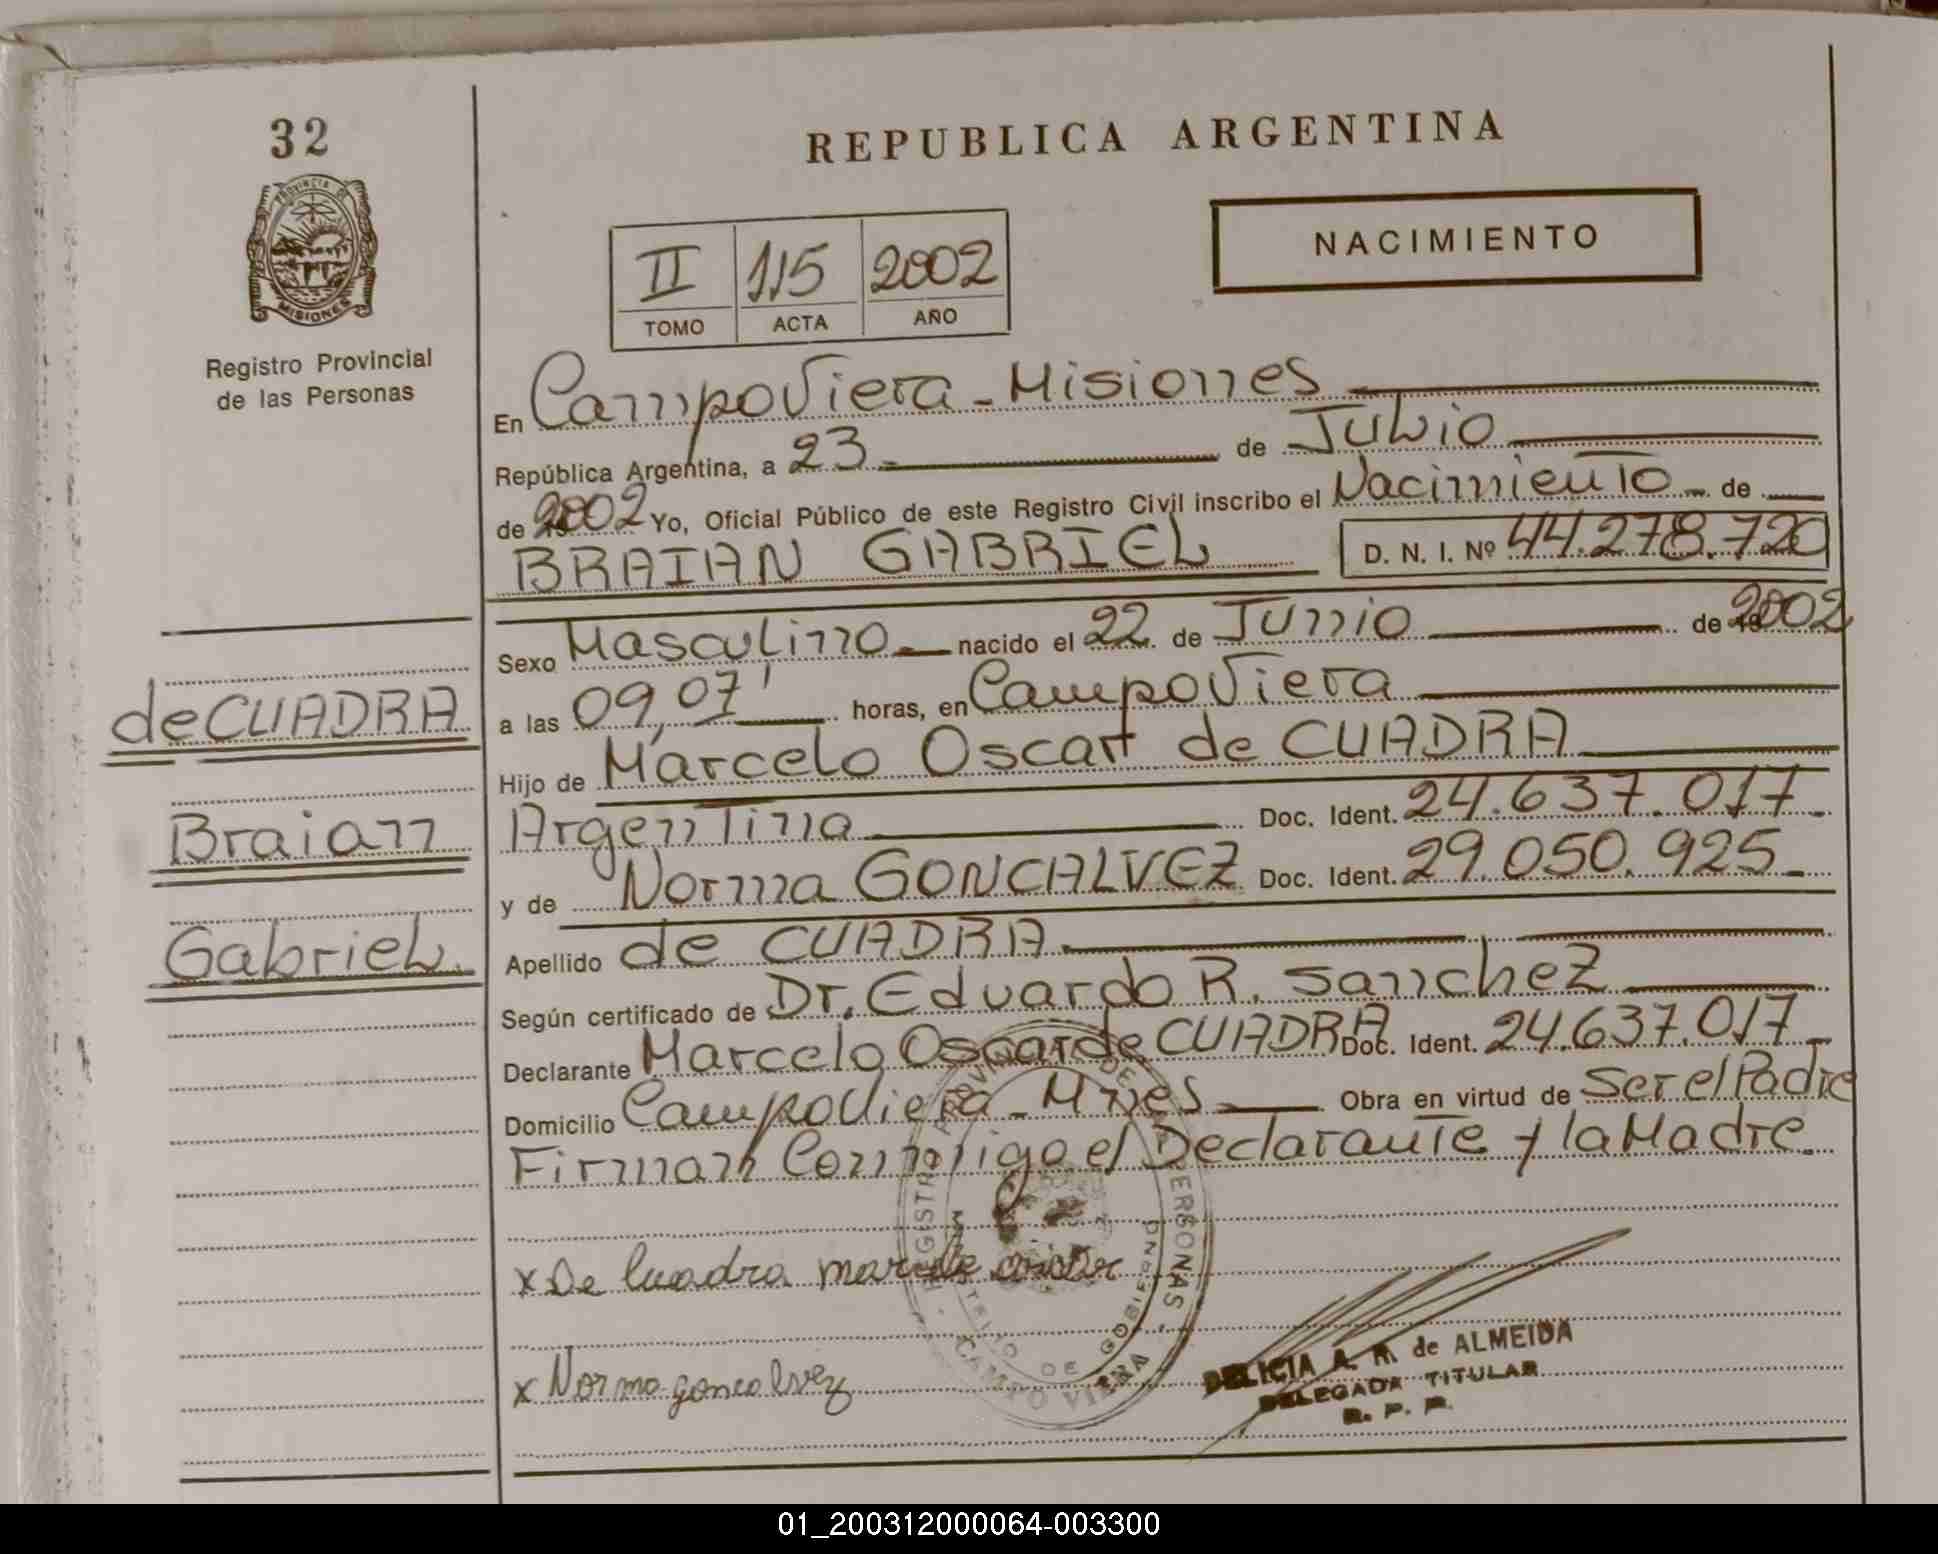 32
PROVINCIA DE
MISIONES
Registro Provincial
de las Personas
de CUADRA
Braian
Gabriel.
REPUBLICA ARGENTINA
NACIMIENTO
II 115 2002
TOMO ACTA AÑO
En Campo Viera - Misiones
República Argentina, a 23 de Julio
de 2002 Yo, Oficial Público de este Registro Civil inscribo el Nacimiento de
BRAIAN GABRIEL D. N. I. Nº 44.278.720
Sexo Masculino nacido el 22 de Junio de 2002
a las 09,07' horas, en Campo Viera
Hijo de Marcelo Oscar de CUADRA
Argentina Doc. Ident. 24.637.017.
y de Norma GONCALVEZ Doc. Ident. 29.050.925
Apellido de CUADRA
Según certificado de Dr. Eduardo R. Sanchez
Declarante Marcelo Oscar de CUADRA Doc. Ident. 24.637.017
Domicilio Campo Viera - Mnes Obra en virtud de Ser el Padre
Firman Conmigo el Declarante y la Madre.
x De Cuadra marcelo oscar
x Norma goncalvez
REGISTRO PROVINCIAL DE LAS PERSONAS
MINISTERIO DE GOBIERNO
CAMPO VIERA
DELICIA A. M. de ALMEIDA
DELEGADA TITULAR
R. P. P.
01_200312000064-003300